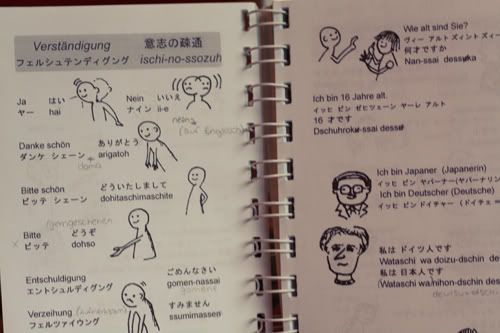 Verständigung 意志の疎通
フェルシュテンディグング ischi-no-ssozuh
Ja はい Nein いいえ
ヤー hai ナイン ii-e
Danke schön ありがとう
ダンケ シェーン arigatoh
Bitte schön どういたしまして
ビッテ シェーン dohitaschimaschite
gerngeschehen
Bitte どうぞ
ビッテ dohso
Entschuldigung ごめんなさい
エントシュルディグング gomen-nassai
Verzeihung すみません
フェルツァイウング ssumimassen
Wie alt sind Sie?
ヴィー アルト ズィント ズィー
何才ですか
Nan-ssai dessuka
Ich bin 16 Jahre alt.
イッヒ ビン ゼヒツェーン ヤーレ アルト
16 才です
Dschuhroku-ssai dessu
Ich bin Japaner (Japanerin)
イッヒ ビン ヤパーナー(ヤパーナリン
Ich bin Deutscher (Deutsche)
イッヒ ビン ドイチャー (ドイチェ
私は ドイツ人です
Wataschi wa doizu-dschin de
私は 日本人です
(Wataschi wa nihon-dschin des